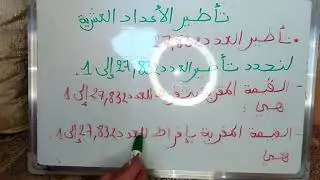 تأطير الأعداد العشرية
• تأطير العدد 27,832
لنحدد تأطير العدد 27,832 إلى 1.
- القيمة المقربة للعدد 27,832 إلى 1
هي:
- القيمة المقربة بإفراط للعدد 27,832 إلى 1.
هي